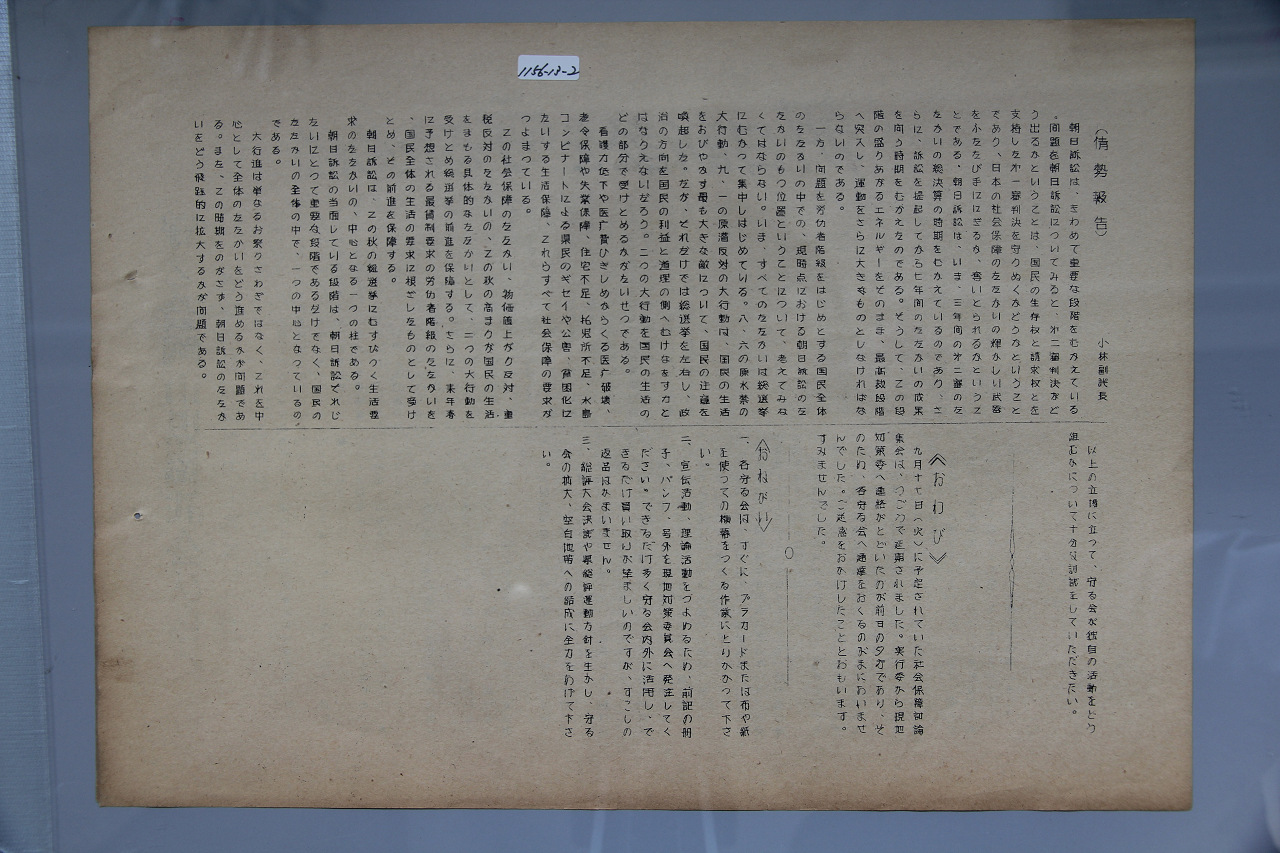 1156-13-2
(情勢報告)
小林副議長
朝日訴訟は、きわめて重要な段階をむかえている
。問題を朝日訴訟についてみると、第二審判決など
う出るかということは、国民の生存権と請求権とを
支持した第一審判決を守りぬくかどうかということ
であり、日本の社会保障のたたかいの輝かしい武器
を小たたび手ににぎるか、奪いとられるかというこ
とである。朝日訴訟は、いま、三年間の第二審のた
たかいの総決算の時期をむかえているのであり、さ
らに、訴訟を提起してから七年間のたたかいの成果
を向う時期をむかえたのである。そうして、この段
階の盛りあがるエネルギーをそのまま、最高裁段階
へ突入し、運動をさらに大きなものとしなければな
らないのである。
一方、問題を労仂者階級をはじめとする国民全体
のたたかいの中での、現時点における朝日訴訟のた
たかいのもつ位置ということについて、考えてみな
くてはならない。いま、すべてのたたかいは総選挙
にむかって集中しはじめている。八、六の原水禁の
大行動、九、一の原潜反対の大行動は、国民の生活
をおびやかす最も大きな敵について、国民の注意を
喚起した。だが、それだけでは総選挙を左右し、政
治の方向を国民の利益と道理の側へむけなおす力と
はなりえないだろう。二つの大行動を国民の生活の
どの部分で受けとめるかがたいせつである。
看護力低下や医疗費ひきしめからくる医疗破壊、
老令保障や失業保障、住宅不足、托児所不足、水島
コンビナートによる県民のギセイや公害、貧困化に
たいする生活保障、これらすべて社会保障の要求が
つよまっている。
この社会保障のたたかい、物価値上がり反対、重
税反対のたたかいの、この秋の高まりが国民の生活
をまもる具体的なたたかいとして、二つの大行動を
受けとめ総選挙の前進を保障する。さらに、来年春
に予想される最賃制要求の労仂者階級のたたかいを
、国民全体の生活の要求に根ざしたものとして受け
とめ、その前進を保障する。
朝日訴訟は、この秋の総選挙にむすびつく生活要
求のたたかいの、中心となる一つの柱である。
朝日訴訟の当面している段階は、朝日訴訟それじ
たいにとって重要な段階であるだけでなく、国民の
たたかいの全体の中で、一つの中心となっているの
である。
大行進は単なるお祭りさわぎではなく、これを中
心として全体のたたかいをどう進めるかが問題であ
る。また、この時期をのがさず、朝日訴訟のたたか
いをどう飛躍的に拡大するかが問題である。
以上の立場に立って、守る会が独自の活動をどう
組むかについて十分な討議をしていただきたい。
≪おわび≫
九月十七日(火)に予定されていた社会保障討論
集会は、つごうで延期されました。実行委から現地
対策委へ連絡がとどいたのが前日の夕方であり、そ
のため、各守る会へ連絡をおくるのがまにあいませ
んでした。ご迷惑をおかけしたこととおもいます。
すみませんでした。
≪おねがい≫
一、各守る会は、すぐに、プラカードまたは布や紙
を使っての横幕をつくる作業にとりかかって下さ
い。
二、宣伝活動、理論活動をつよめるため、前記の冊
子、パンフ、号外を現地対策委員会へ発注してく
ださい。できるだけ多く守る会内外に活用し、で
きるだけ買い取りが望ましいのですが、すこしの
返品はかまいません。
三、総評大会決議や県総評運動方針を生かし、守る
会の拡大、空白地帯への結成に全力をあげて下さ
い。